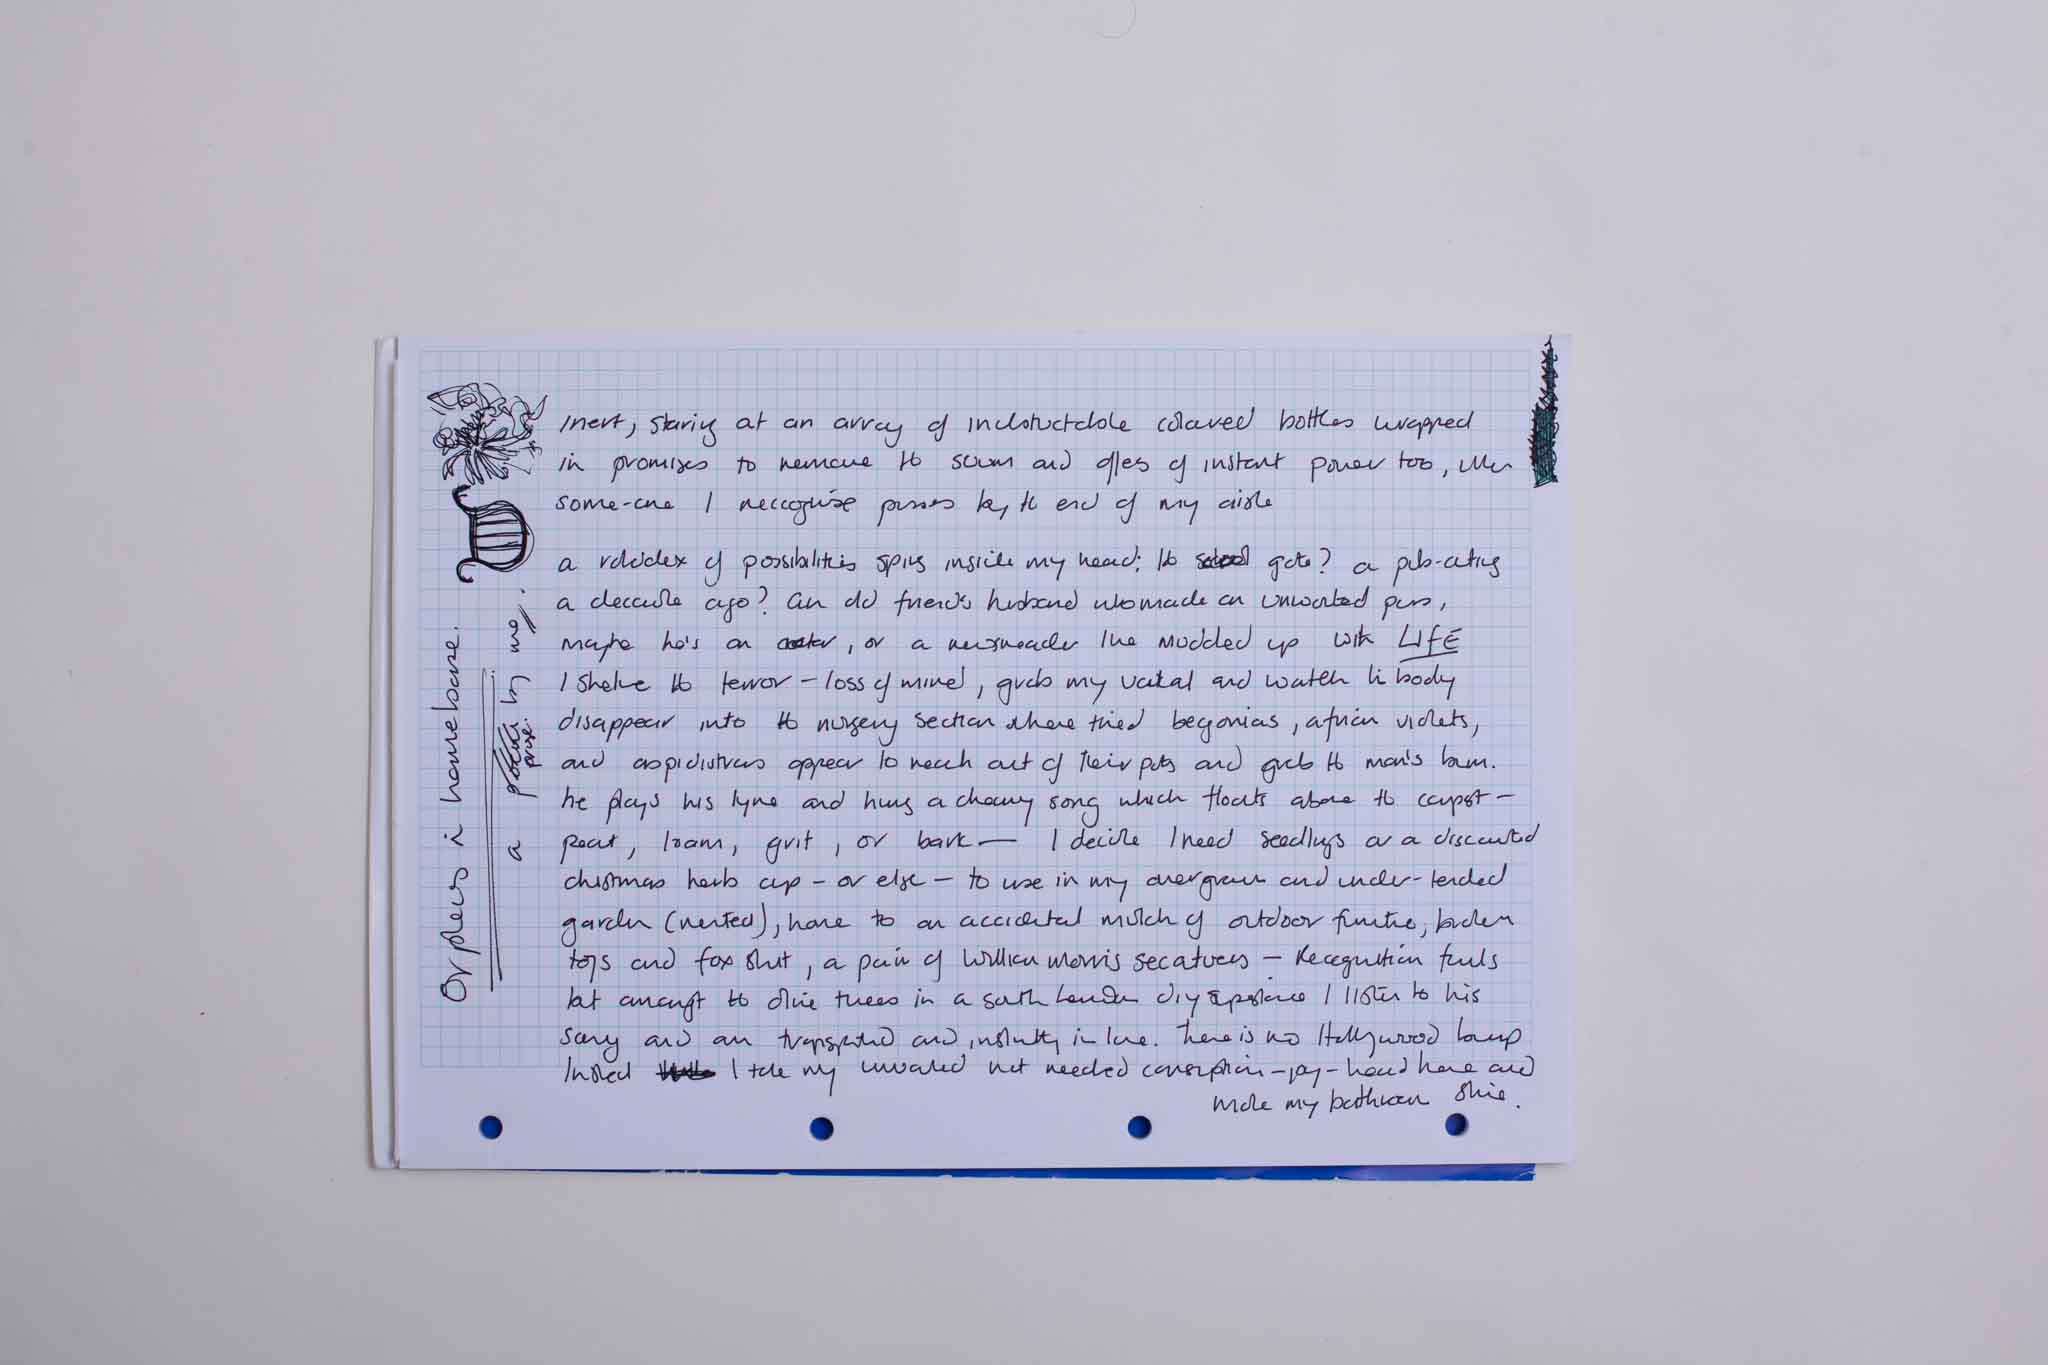 Orpheus in homebase.
a prose by me.
Inert, staring at an array of indestructable coloured bottles wrapped
in promises to remove the scum and offers of instant power too, when
some-one I reccognise passes by the end of my aisle
a rolodex of possibilities spins inside my head: the school gate? a pub-outing
a decade ago? an old friend's husband who made an unwanted pass,
maybe he's an actor, or a newsreader I've muddled up with LIFE
I shelve the terror - loss of mind, grab my and watch his body
disappear into the nursery section where tired begonias, african violets,
and aspidistras appear to reach out of their pots and grab the man's bum.
he plays his lyre and hums a cheery song which floats above the compost -
peat, loam, grit, or bark — I decide I need seedlings or a discounted
christmas herb cup - or else - to use in my overgrown and under-tended
garden (rented), home to an accidental mulch of outdoor furniture, broken
toys and fox shit, a pair of William Morris secateurs - Recognition fails
but amongst the olive trees in a south London diy experience I listen to his
song and am transported and instantly in love. There is no Hollywood bump
Instead I take my unwanted not needed consumption - joy - hoard home and
make my bathroom shine.